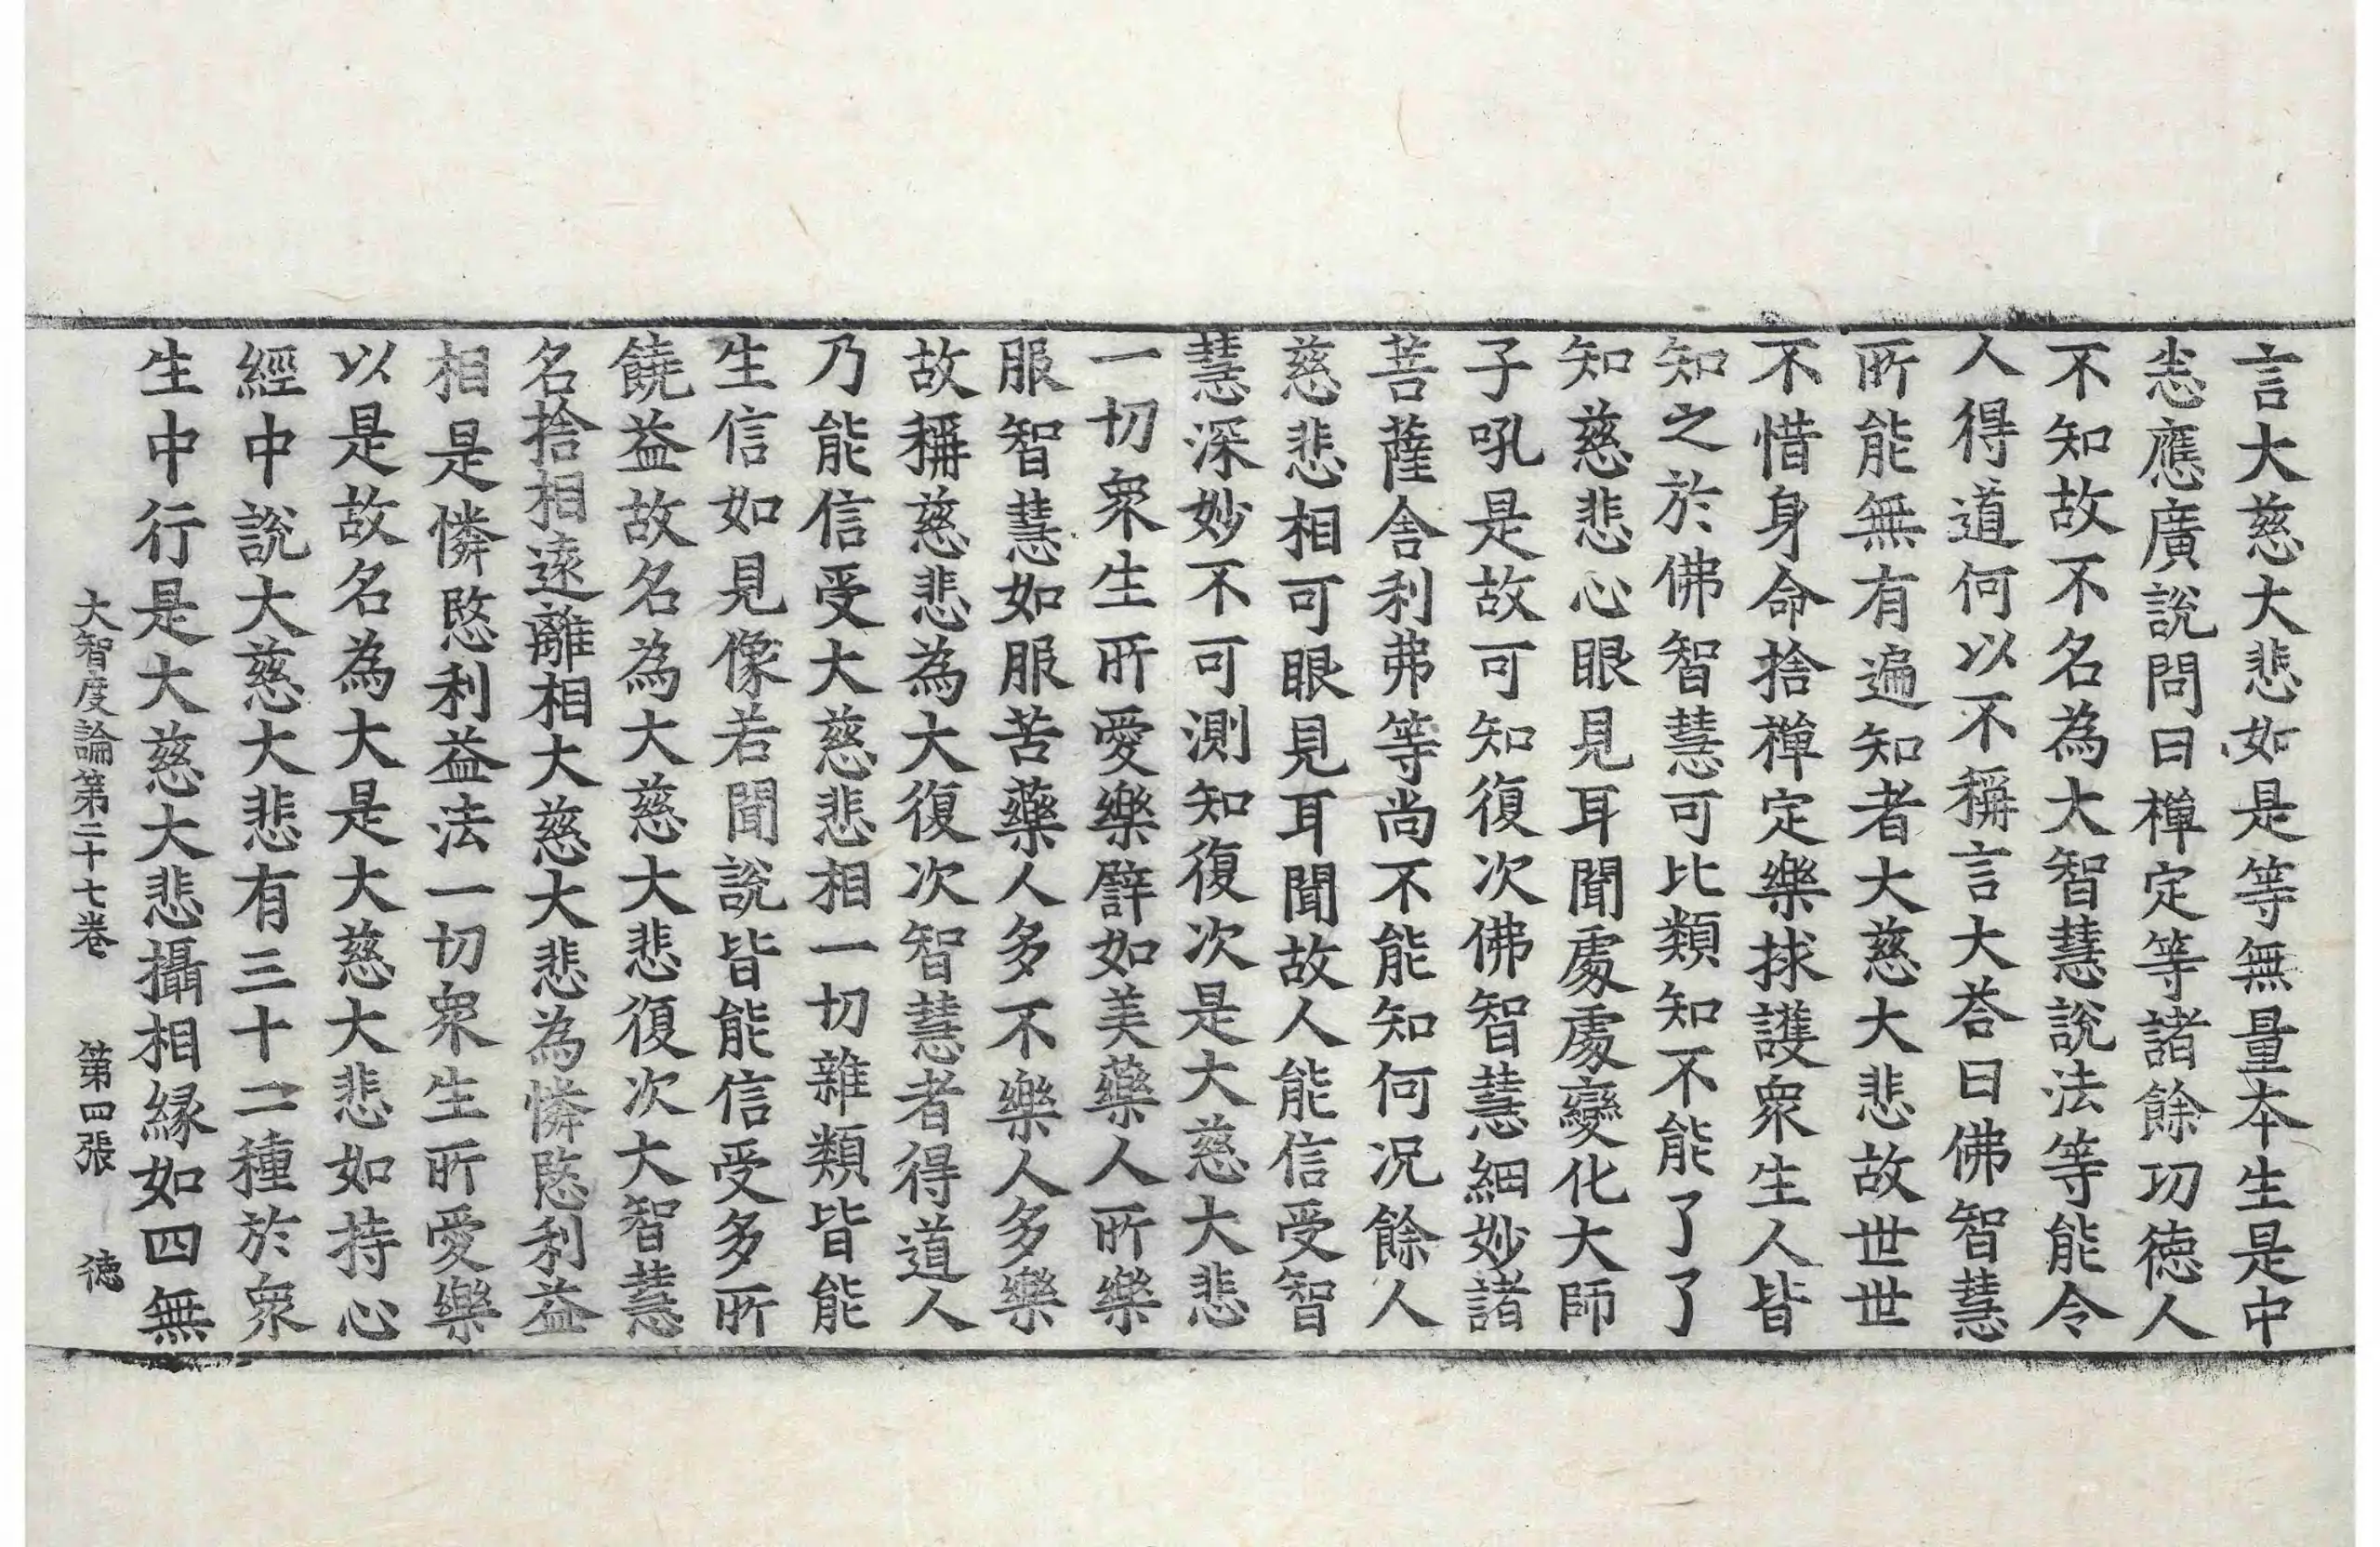 言大慈大悲如是等無量本生是中
恙應廣說問曰禪定等諸餘功德人
不知故不名為大智慧說法等能令
人得道何以不稱言大荅曰佛智慧
所能無有遍知者大慈大悲故世世
不惜身命捨禪定樂救護衆生人皆
知之於佛智慧可比類知不能了了
知慈悲心眼見耳聞處處變化大師
子吼是故可知復次佛智慧細妙諸
菩薩舍利弗等尚不能知何況餘人
慈悲相可眼見耳聞故人能信受智
慧深妙不可測知復次是大慈大悲
一切衆生所愛樂譬如美藥人所樂
服智慧如服苦藥人多不樂人多樂
故稱慈悲為大復次智慧者得道人
乃能信受大慈悲相一切雜類皆能
生信如見像若聞說皆能信受多所
饒益故名為大慈大悲復次大智慧
名捨相遠離相大慈大悲為憐愍利益
相是憐愍利益法一切衆生所愛樂
以是故名為大是大慈大悲如持心
經中說大慈大悲有三十二種於衆
生中行是大慈大悲攝相緣如四無
大智度論第二十七卷　第四張　德